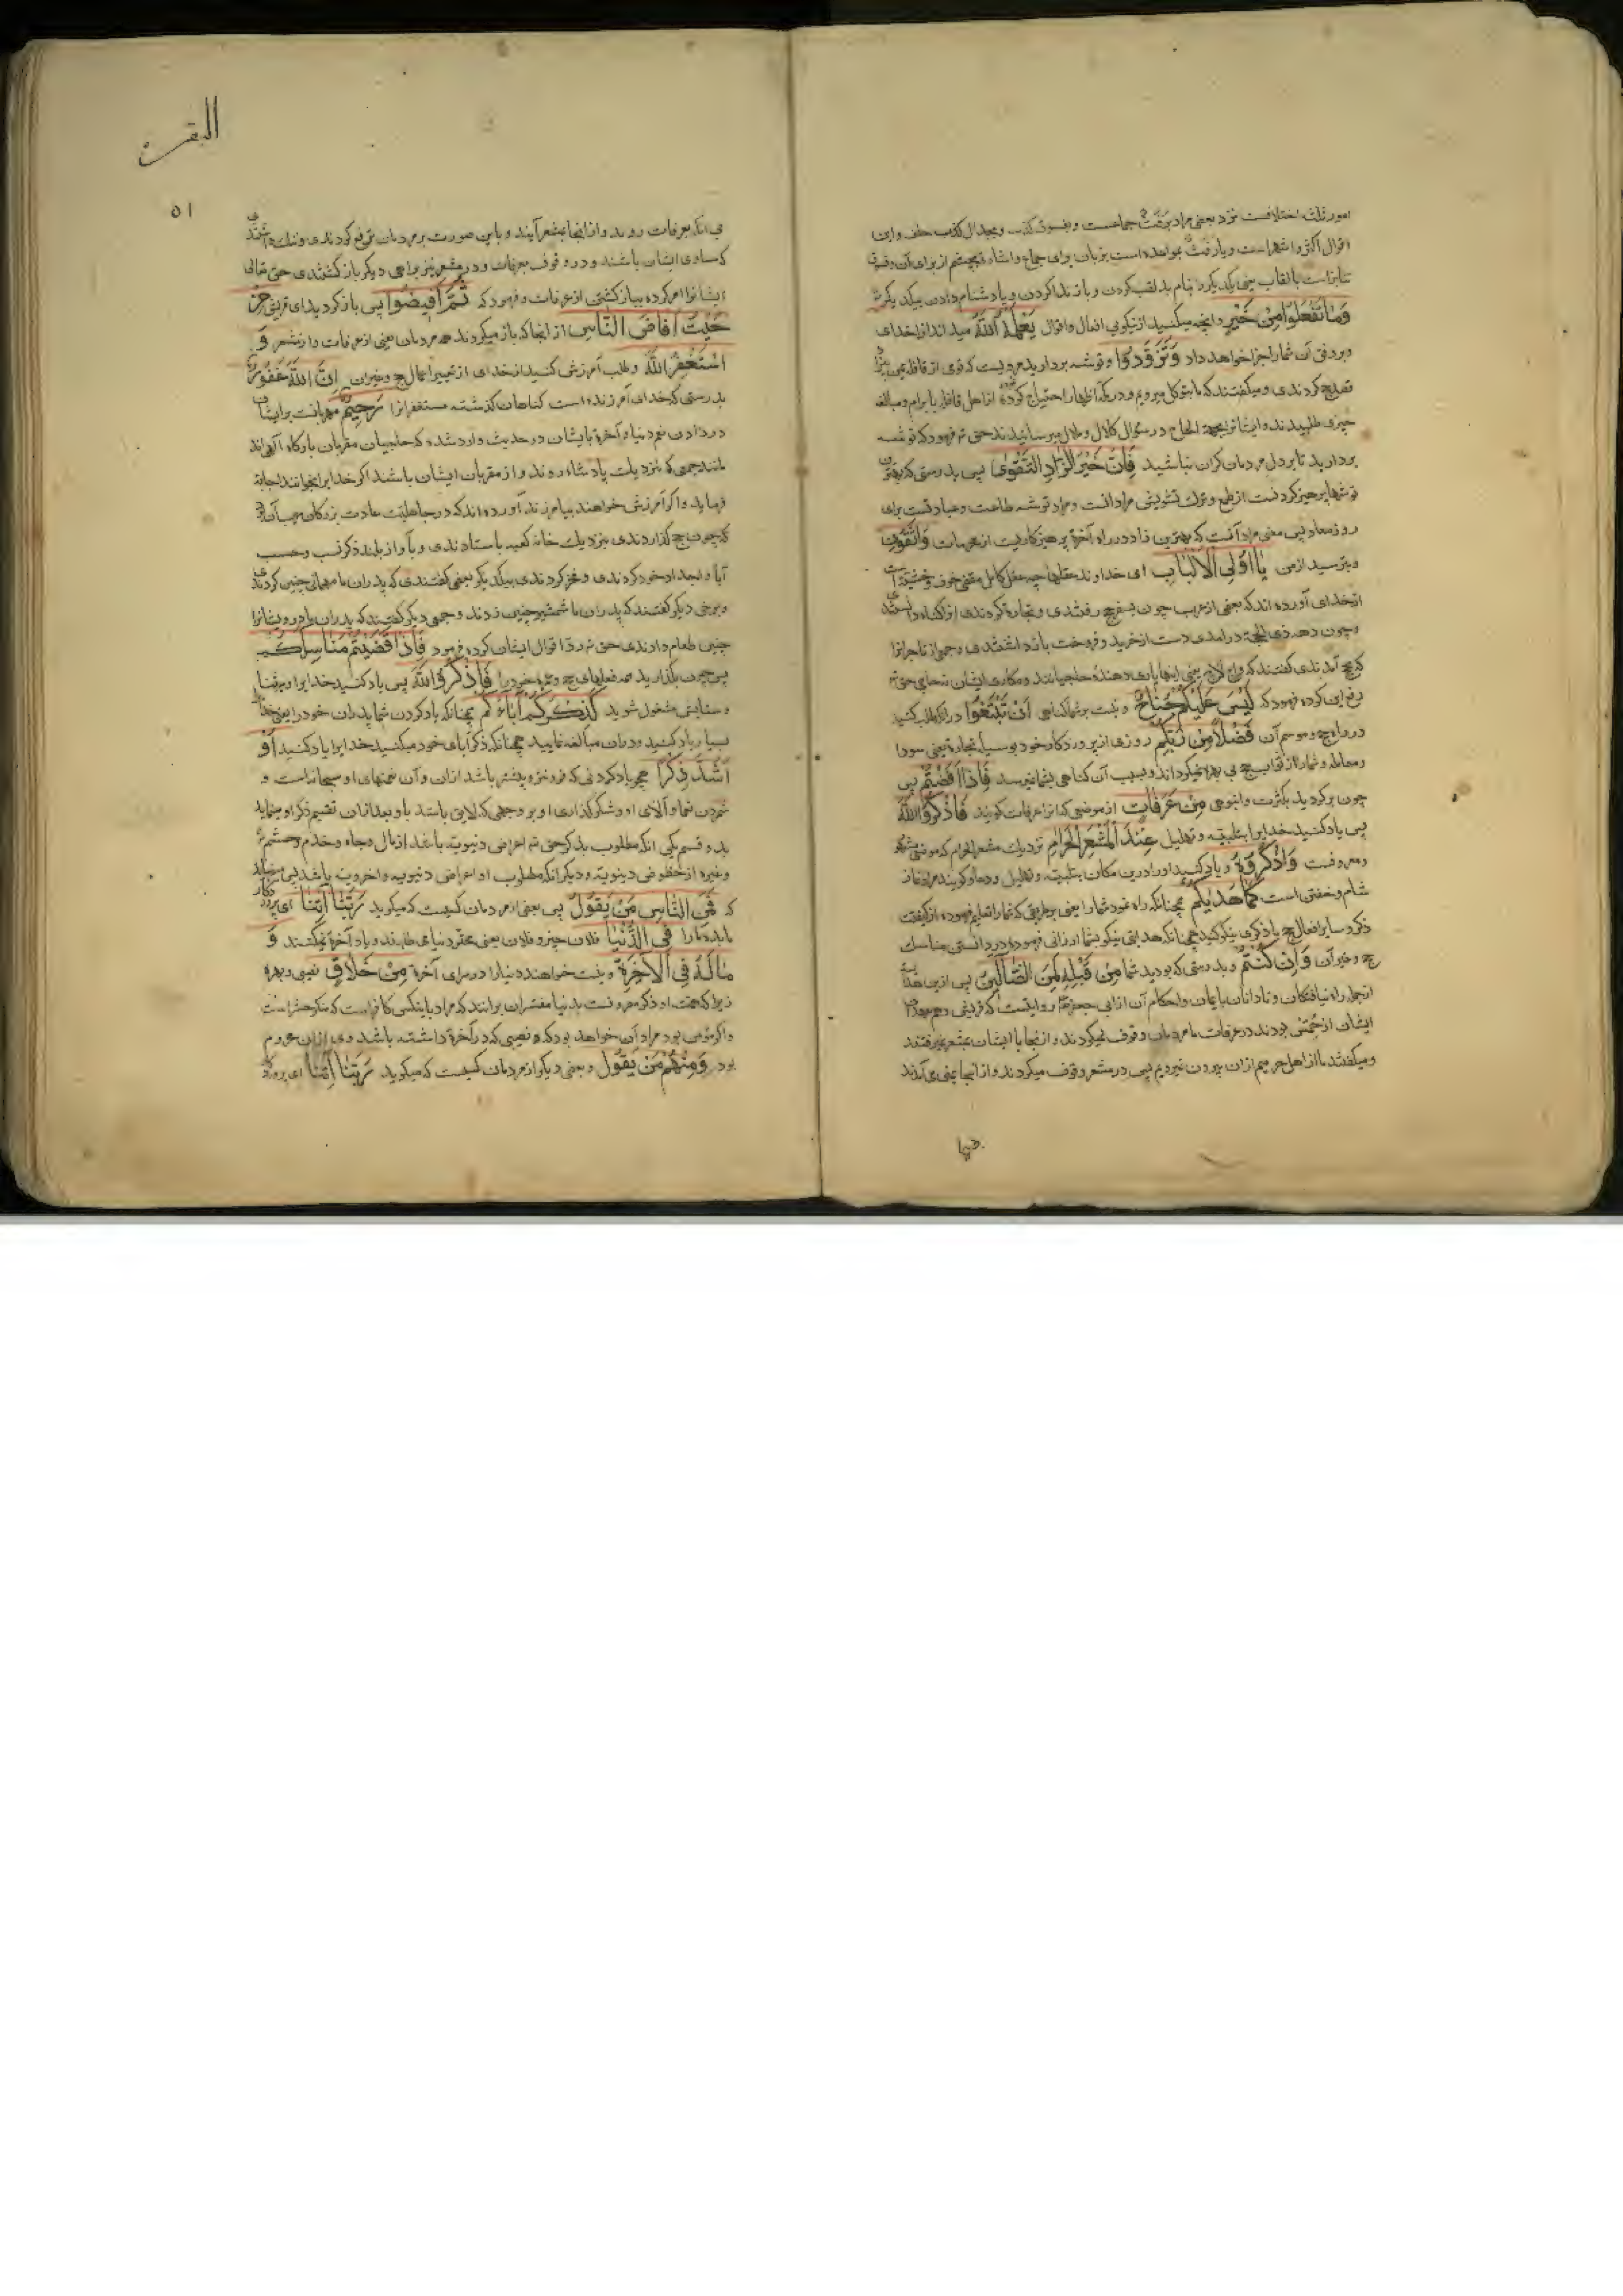 امور ثلثه اختلافست نزد بعضی مراد برفث جماعست و بفسوق کذب و بجدال کذب حلف و این
اقوال اکثر و اشهر است و یا رفث مواعده است بزبان برای جماع و اشاره بچشم از برای آن و فسوق
تنابز است بالقاب یعنی یکدیگر را بنام بد لقب کردن و باز ندا کردن و یا دشنام دادن بیکدیگر
وَمَا تَفْعَلُوا مِنْ خَيْرٍ و انچه میکنید از نیکویی افعال و اقوال يَعْلَمْهُ اللّٰهُ میداند انرا خدای
و بر وفق آن شما را جزا خواهد داد وَتَزَوَّدُوا و توشه بردارید مرویست که قومی از قافله یمن
قصد حج کردندی و میگفتند که ما بتوکل میرویم و در مکه اظهار احتیاج کرده از اهل قافله بابرام و مبالغه
چیزی طلبیدند و ایشانرا بجهة الحاح در سؤال کلال و ملال میرسانیدند حق تع فرمود که توشه
بردارید تا بر دل مردمان گران نباشید فَاِنَّ خَيْرَ الزَّادِ التَّقْوٰى پس بدرستی که بهترین
توشها پرهیز کردنست از طمع و ترک تشویش مردانست و مراد توشه طاعت و عبادتست برای
روز معاد پس معنی مراد آنست که بهترین زاد در راه آخرة پرهیزکاریست از محرمات وَاتَّقُونِ
و بترسید از من يَا اُولِي الْاَلْبَابِ ای خداوند عقلها چه عقل کامل مقتضی خوف و خشیتست
از خدای آورده اند که بعضی از عرب چون بسفر حج رفتندی و تجارة کردندی انرا گناه دانستند
و چون دهه ذی الحجة درامدی دست از خرید و فروخت باز داشتندی و جمعی از تاجرانرا
که بحج آمدندی گفتند که یعنی اینها یاری دهنده حاجیانند و مکاری ایشان نه حاجی حق تع
رفع این کرده فرمود که لَيْسَ عَلَيْكُمْ جُنَاحٌ و نیست بر شما گناهی اَنْ تَبْتَغُوا در انکه طلب کنید
در راه حج و موسم آن فَضْلًا مِنْ رَبِّكُمْ روزی از پروردگار خود بوسیله تجارة یعنی سودا
و معامله و شما را از ثواب حج بی بهره نمیگرداند و بسبب آن گناهی بشما نمیرسد فَاِذَا اَفَضْتُمْ پس
چون برگردید بکثرت و انبوهی مِنْ عَرَفَاتٍ از موضعی که انرا عرفات گویند فَاذْكُرُوا اللّٰهَ
پس یاد کنید خدایرا بتلبیه و تهلیل عِنْدَ الْمَشْعَرِ الْحَرَامِ نزدیک مشعر الحرام که موضعی مشهور
و معروفست وَاذْكُرُوهُ و یاد کنید او را درین مکان بتلبیه و تهلیل و دعا و گویند مراد نماز
شام و خفتن است كَمَا هَدٰيكُمْ همچنانکه راه نمود شما را یعنی بطریقی که شما را تعلیم فرموده از کیفیت
ذکر و سایر افعال حج یا ذکری نیکو کنید همچنانکه هدایتی نیکو بشما ارزانی فرموده در دانستن مناسک
حج و غیر آن وَاِنْ كُنْتُمْ و بدرستی که بودید شما مِنْ قَبْلِهِ لَمِنَ الضَّالِّينَ پس ازین هدایه
از جمله راه نیافتگان و نادانان بایمان و احکام آن از ابی جعفر روایتست که قریش و هم سوگندان
ایشان از حمس بودند در عرفات با مردمان وقوف نمیکردند و از انجا با ایشان بمشعر نمیرفتند
و میگفتند ما از اهل حرمیم از ان بیرون نمیرویم پس در مشعر وقوف میکردند و از انجا بمنی می آمدند
البقرة
٥١
بی انکه بعرفات روند و از انجا بمشعر آیند و باین صورت بر مردمان ترفع کردندی و ننک داشتندی
که مساوی ایشان باشند و در وقوف بعرفات و در مشعر نیز براهی دیگر باز گشتندی حق تعالی
ایشانرا امر کرده بباز گشتن از عرفات و فرمود که ثُمَّ اَفِيضُوا پس باز گردید ای قریش مِنْ
حَيْثُ اَفَاضَ النَّاسُ از انجا که باز میگردند همه مردمان یعنی از عرفات و از مشعر وَ
اسْتَغْفِرُوا اللّٰهَ و طلب آمرزش کنید از خدای از تغییر اعمال حج و غیر ان اِنَّ اللّٰهَ غَفُورٌ
بدرستی که خدای آمرزنده است گناهان گذشته مستغفرانرا رَحِيمٌ مهربانست بر ایشان
در دادن نعم دنیا و آخرة بایشان در حدیث وارد شده که حاجیان مقربان بارگاه آلهی اند
مانند جمعی که نزدیک پادشاه روند و از مقربان ایشان باشند اگر خدایرا بخوانند اجابة
فرماید و اگر آمرزش خواهند بیامرزد آورده اند که در جاهلیت عادت بزرگان عرب آن بود
که چون حج گذاردندی بنزدیک خانه کعبه باستادندی و بآواز بلند ذکر نسب و حسب
آبا و اجداد خود کردندی و فخر کردندی بیکدیگر بعضی گفتندی که پدران ما مهمانی چنین کردند
و برخی دیگر گفتند که پدران ما شمشیر چنین زدند و جمعی دیگر گفتند که پدران ما درویشانرا
چنین طعام دادندی حق تع رد اقوال ایشان کرده فرمود فَاِذَا قَضَيْتُمْ مَنَاسِكَكُمْ
پس چون بگذارید همه فعلهای حج و عمره خود را فَاذْكُرُوا اللّٰهَ پس یاد کنید خدایرا و بثنا
و ستایش مشغول شوید كَذِكْرِكُمْ اٰبَاءَكُمْ همچنانکه یاد کردن شما پدران خود را یعنی خدایرا
بسیار یاد کنید و دران مبالغه نمایید همچنانکه ذکر آبای خود میکنید خدایرا یاد کنید اَوْ
اَشَدَّ ذِكْرًا همچو یاد کردنی که فزونتر و بیشتر باشد ازان و آن نعمتهای او سبحانه است و
شمردن نعما و آلای او و شکرگذاری او بر وجهی که لایق باشد باو بعد ازان تقسیم ذکر او مینماید
بدو قسم یکی انکه مطلوب بذکر حق تع اعراض دنیویه باشد از مال و جاه و خدم و حشم
و غیره از حظوظی دینویه و دیگر انکه مطلوب او اعراض دنیویه و اخرویه باشد پس میفرماید
که فَمِنَ النَّاسِ مَنْ يَقُولُ پس بعضی از مردمان کسیست که میگوید رَبَّنَا اٰتِنَا ای پروردگار
ما بده ما را فِي الدُّنْيَا فلان چیز و فلان یعنی محقر دنیای طلبند و یاد آخرة نمیکنند وَ
مَا لَهُ فِي الْاٰخِرَةِ و نیست خواهنده دنیا را در سرای آخرة مِنْ خَلَاقٍ نصیبی و بهره
زیرا که همت او ذکر معروفست بدنیا مفسران برانند که مراد باینکس کافر است که منکر حشر است
و اگر مؤمن بود مراد آن خواهد بود که نصیبی که در آخرة داشته باشد وی ازان محروم
بود وَمِنْهُمْ مَنْ يَقُولُ و بعضی دیگر از مردمان کسیست که میگوید رَبَّنَا اٰتِنَا ای پروردگار